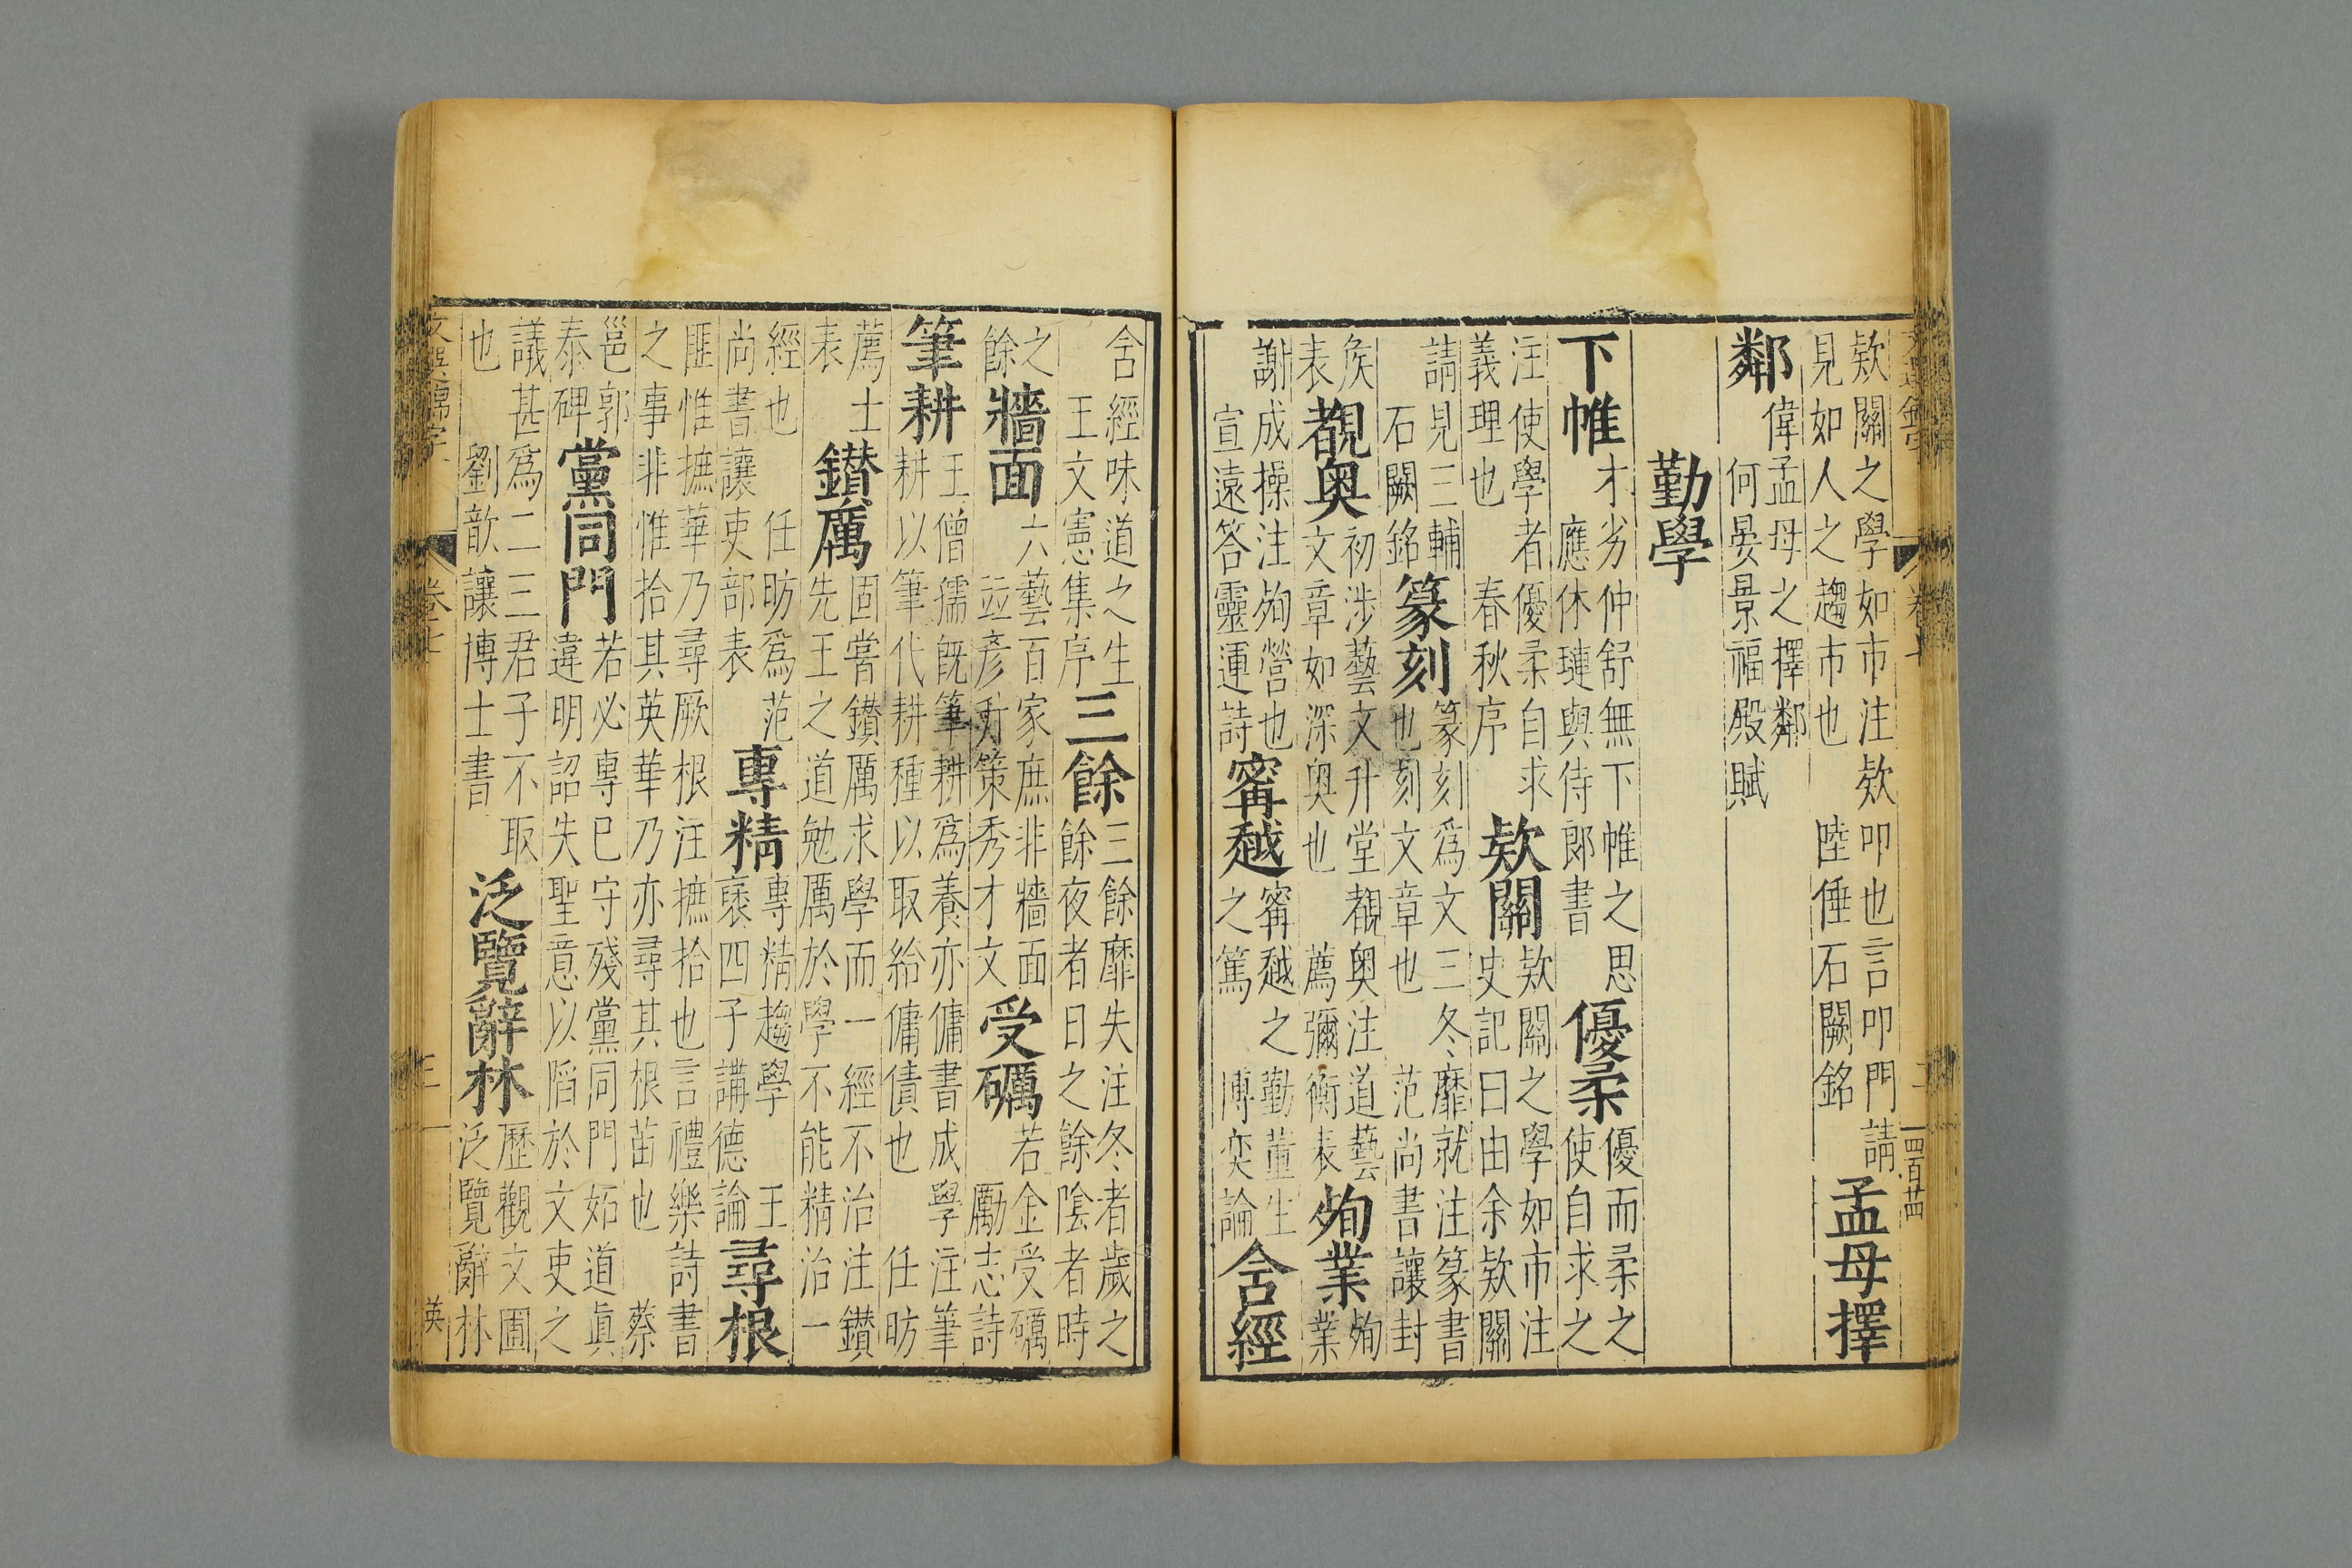 欵關之學如市注欵叩也言叩門請
見如人之趨市也 陸倕石闕銘
孟母擇
鄰
偉孟母之擇鄰
何晏景福殿賦
勤學
下帷
才劣仲舒無下帷之思
應休璉與侍郎書
優柔
優而柔之
使自求之
注使學者優柔自求
義理也 春秋序
欵關
欵關之學如市注
史記曰由余欵關
請見三輔
石闕銘
篆刻
篆刻爲文三冬靡就注篆書
也刻文章也 范尚書讓封
侯
表
覩奥
初涉藝文升堂覩奥注道藝
文章如深奥也 薦彌衡表
殉業
殉
業
謝成操注殉營也
宣遠答靈運詩
甯越
甯越之勤董生
之篤 博奕論
含經
含經味道之生
王文憲集序
三餘
三餘靡失注冬者歲之
餘夜者日之餘陰者時
之
餘
牆面
六藝百家庶非牆面
並彥昇策秀才文
受礪
若金受礪
勵志詩
筆耕
王僧孺旣筆耕爲養亦傭書成學注筆
耕以筆代耕種以取給傭債也 任昉
薦士
表
鑚厲
固嘗鑚厲求學而一經不治注鑚
先王之道勉厲於學不能精治一
經也 任昉爲范
尚書讓吏部表
專精
專精趨學 王
褒四子講德論
尋根
匪惟摭華乃尋厥根注摭拾也言禮樂詩書
之事非惟拾其英華乃亦尋其根苗也 蔡
邕郭
泰碑
黨同門
若必專已守殘黨同門妬道眞
違明詔失聖意以陷於文吏之
議甚爲二三君子不取
也 劉歆讓博士書
泛覽辭林
歷觀文圃
泛覽辭林
文選錦字 卷七 三 英